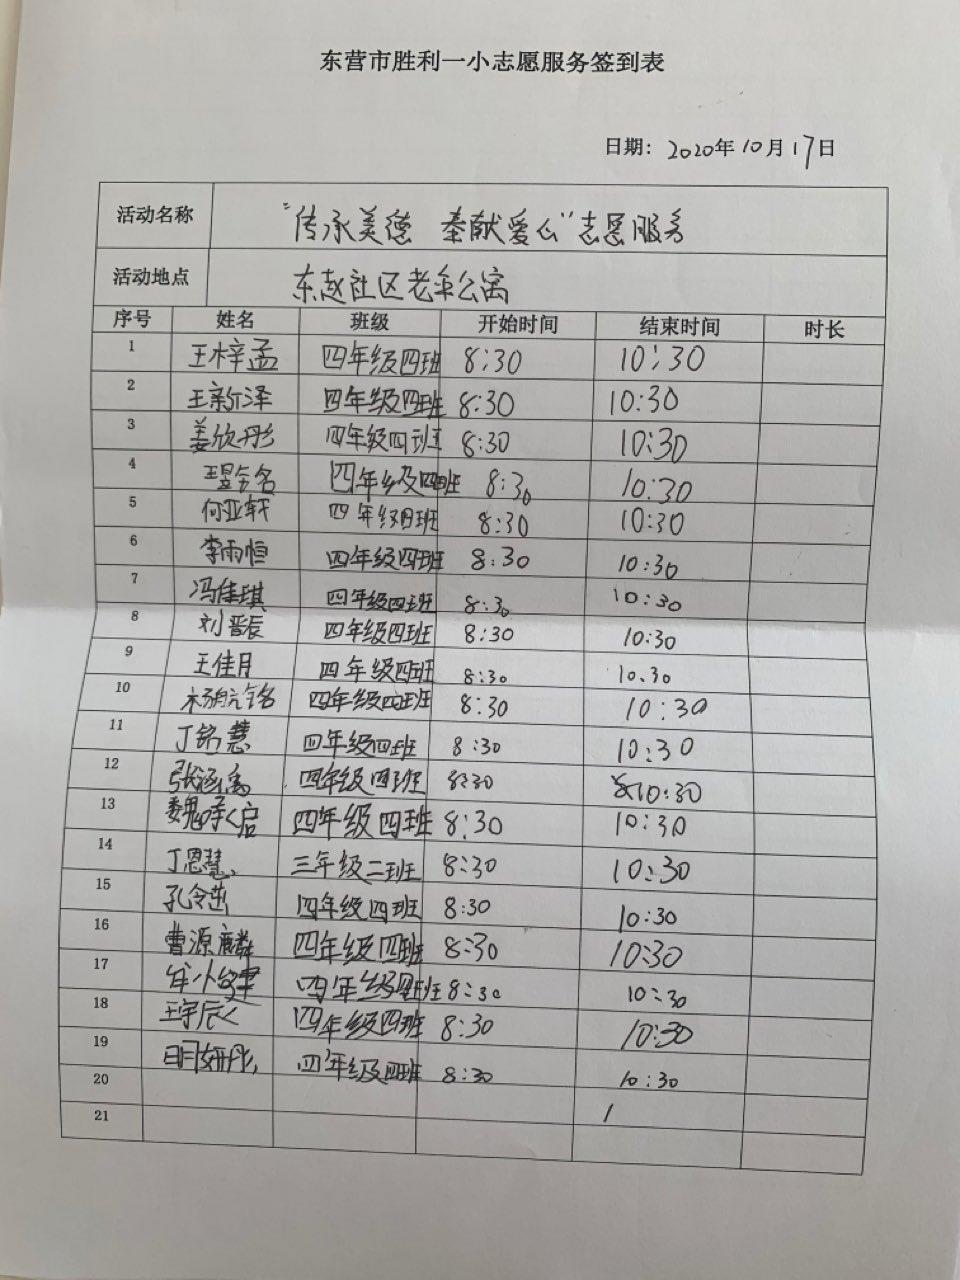 东营市胜利一小志愿服务签到表
日期：2020年10月17日
活动名称 “传承美德 奉献爱心”志愿服务
活动地点 东赵社区老年公寓
序号 姓名 班级 开始时间 结束时间 时长
1 王梓孟 四年级四班 8:30 10:30
2 王新泽 四年级四班 8:30 10:30
3 姜欣彤 四年级四班 8:30 10:30
4 四年级四班 8:30 10:30
5 何亚轩 四年级四班 8:30 10:30
6 李雨恒 四年级四班 8:30 10:30
7 冯佳琪 四年级四班 8:30 10:30
8 刘晋辰 四年级四班 8:30 10:30
9 王佳月 四年级四班 8:30 10:30
10 四年级四班 8:30 10:30
11 丁铭慧 四年级四班 8:30 10:30
12 张涵禹 四年级四班 8:30 10:30
13 四年级四班 8:30 10:30
14 丁恩慧 三年级二班 8:30 10:30
15 孔令茁 四年级四班 8:30 10:30
16 曹源麟 四年级四班 8:30 10:30
17 四年级四班 8:30 10:30
18 王宇辰 四年级四班 8:30 10:30
19 四年级四班 8:30 10:30
20
21